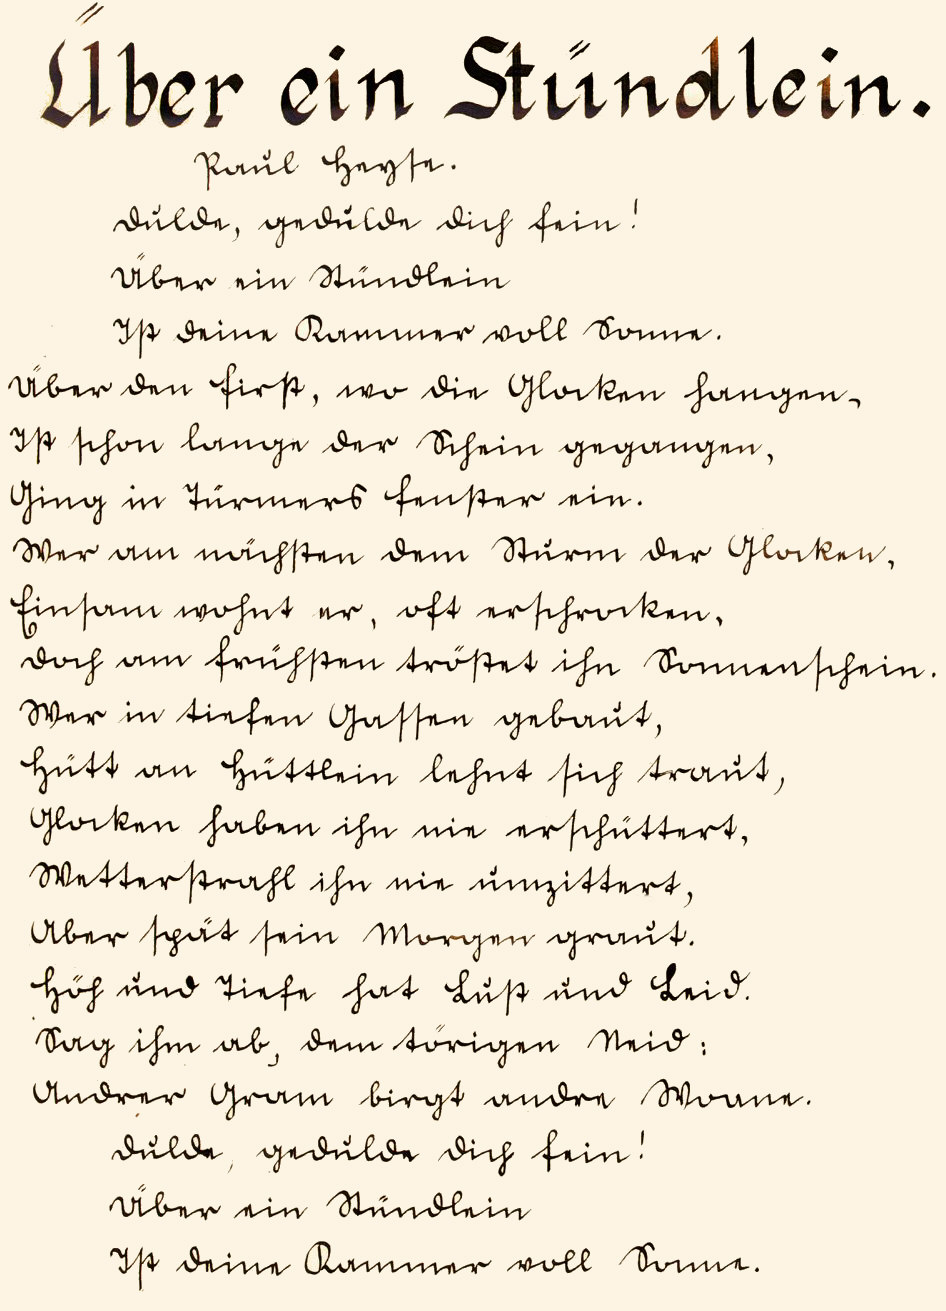 Über ein Stündlein.
Paul Heyse.
Dulde, gedulde dich fein!
Über ein Stündlein
Ist deine Kammer voll Sonne.
Über den First, wo die Glocken hangen,
Ist schon lange der Schein gegangen,
Ging in Türmers Fenster ein.
Wer am nächsten dem Sturm der Glocken,
Einsam wohnt er, oft erschrocken,
Doch am frühsten tröstet ihn Sonnenschein.
Wer in tiefen Gassen gebaut,
Hütt an Hüttlein lehnt sich traut,
Glocken haben ihn nie erschüttert,
Wetterstrahl ihn nie umzittert,
Aber spät sein Morgen graut.
Höh und Tiefe hat Lust und Leid.
Sag ihm ab, dem törigen Neid:
Andrer Gram birgt andre Wonne.
Dulde, gedulde dich fein!
Über ein Stündlein
Ist deine Kammer voll Sonne.